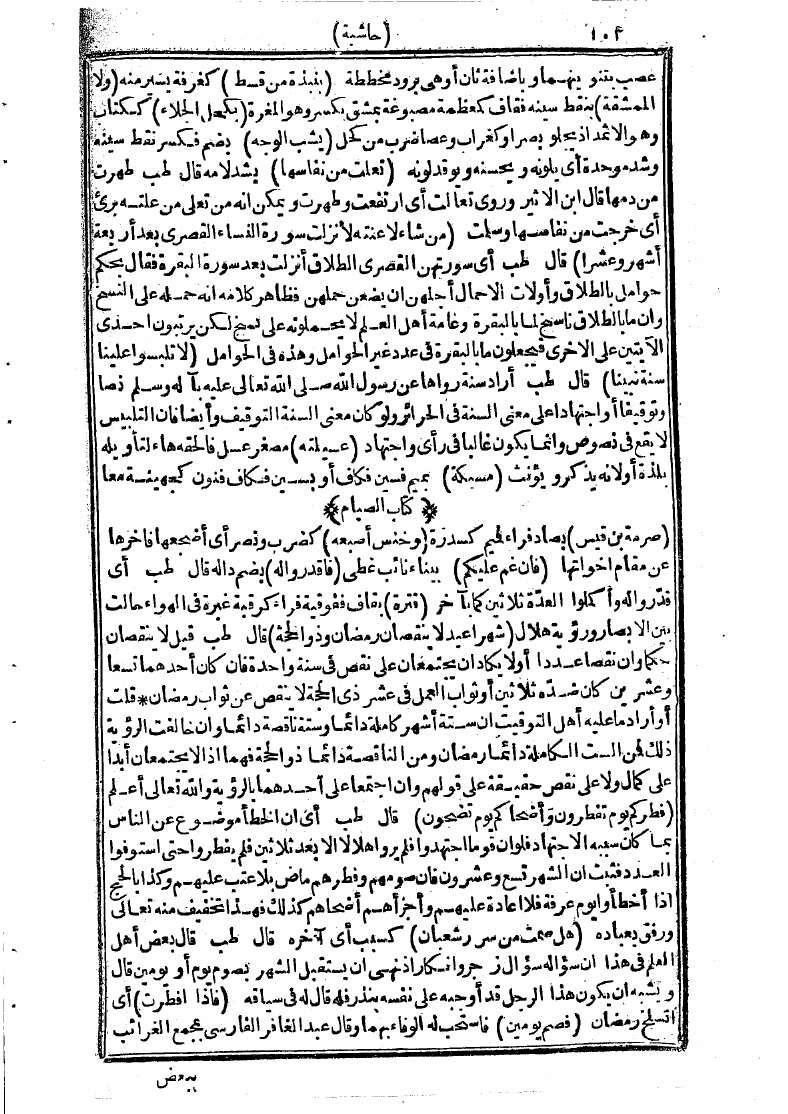 ١٠٤ (حاشية)
عصب بتنوينهما وباضافة ثان أوهى برود مخططة (بنبذة من قسط) كغرفة يسير منه (ولا
الممشقة) بنقط سينه فقاف كمعظمة مصبوغة بمشق بكسر وهو المغرة (بكحل الجلاء) ككتاب
وهو الاثمد اذ يجلو بصرا وكغراب وعصا ضرب من كحل (يشب الوجه) بضم فكسر نقط سينه
وشد موحدة أى يلونه ويحسنه ويوقد لونه (تعلت من نفاسها) بشد لامه قال طب طهرت
من دمها قال ابن الاثير وروى تعالت أى ارتفعت وطهرت ويمكن انه من تعلى من علته برئ
أى خرجت من نفاسها وسلمت (من شاء لاعنته لأنزلت سورة النساء القصرى بعد أربعة
أشهر وعشرا) قال طب أى سورتهن القصرى الطلاق أنزلت بعد سورة البقرة فقال بحكم
حوامل بالطلاق وأولات الاحمال أجلهن ان يضعن حملهن فظاهر كلامه انه حمله على النسخ
وان ما بالطلاق ناسخ لما بالبقرة وعامة أهل العلم لا يحملونه على نسخ لكن يرتبون احدى
الآيتين على الاخرى فيجعلون ما بالبقرة فى عدد غير الحوامل وهذه فى الحوامل (لا تلبسوا علينا
سنة نبينا) قال طب أراد سنة رواها عن رسول الله صلى الله تعالى عليه بآله وسلم نصا
وتوقيفا أواجتهادا على معنى السنة فى الحرائر ولو كان معنى السنة التوقيف وأيضا فان التلبيس
لا يقع فى نصوص وانما يكون غالبا فى رأى واجتهاد (عسيلته) مصغر عسل فالحقه هاء لتأويله
بلذة أولانه يذكر ويؤنث (مسيكة) بميم فسين فكاف أو بسين فكاف فنون كجهينة معا
﴿كتاب الصيام﴾
(صرمة بن قيس) بصاد فراء فميم كسدرة (وخنس أصبعه) كضرب ونصر أى أضجعها فاخرها
عن مقام اخواتها (فان غم عليكم) ببناء نائب غطى (فاقدرواله) بضم داله قال طب أى
قدروا له وأكملوا العدة ثلاثين كما بآخر (قترة) بقاف ففوقية فراء كرقبة غبرة فى الهواء حالت
بين الابصار ورؤية هلال (شهرا عيد لا ينقصان رمضان وذو الحجة) قال طب قيل لا ينقصان
حكما وان نقصا عددا أولا يكادان يجتمعان على نقص فى سنة واحدة فان كان أحدهما تسعا
وعشرين كان ضده ثلاثين أو ثواب العمل فى عشر ذى الحجة لا ينقص عن ثواب رمضان * قلت
أو أراد ما عليه أهل التوقيت ان ستة أشهر كاملة دائما وستة ناقصة دائما وان خالفت الرؤية
ذلك فمن الست الكاملة دائما رمضان ومن الناقصة دائما ذو الحجة فهما اذا لا يجتمعان أبدا
على كمال ولا على نقص حقيقة على قولهم وان اجتمعا على أحدهما بالرؤية والله تعالى أعلم
(فطركم يوم تفطرون وأضحاكم يوم تضحون) قال طب أى ان الخطأ موضوع عن الناس
بما كان سبيله الاجتهاد فلوان قوما اجتهدوا فلم يروا هلالا الا بعد ثلاثين فلم يفطروا حتى استوفوا
العدد فثبت ان الشهر تسع وعشرون فان صومهم وفطرهم ماض بلا عتب عليهم وكذا بالحج
اذا أخطأوا يوم عرفة فلا اعادة عليهم وأجزأهم أضحاهم كذلك فهذا تخفيف منه تعالى
ورفق بعباده (هل صمت من سرر شعبان) كسبب أى آخره قال طب قال بعض أهل
العلم فى هذا ان سؤاله سؤال زجر وانكار اذ نهى ان يستقبل الشهر بصوم يوم أو يومين قال
ويشبه ان يكون هذا الرجل قد أوجبه على نفسه بنذر فله قال له فى سياقه (فاذا افطرت) أى
انسلخ رمضان (فصم يومين) فاستحب له الوفاء بهما وقال عبد الغافر الفارسى بمجمع الغرائب
بعض